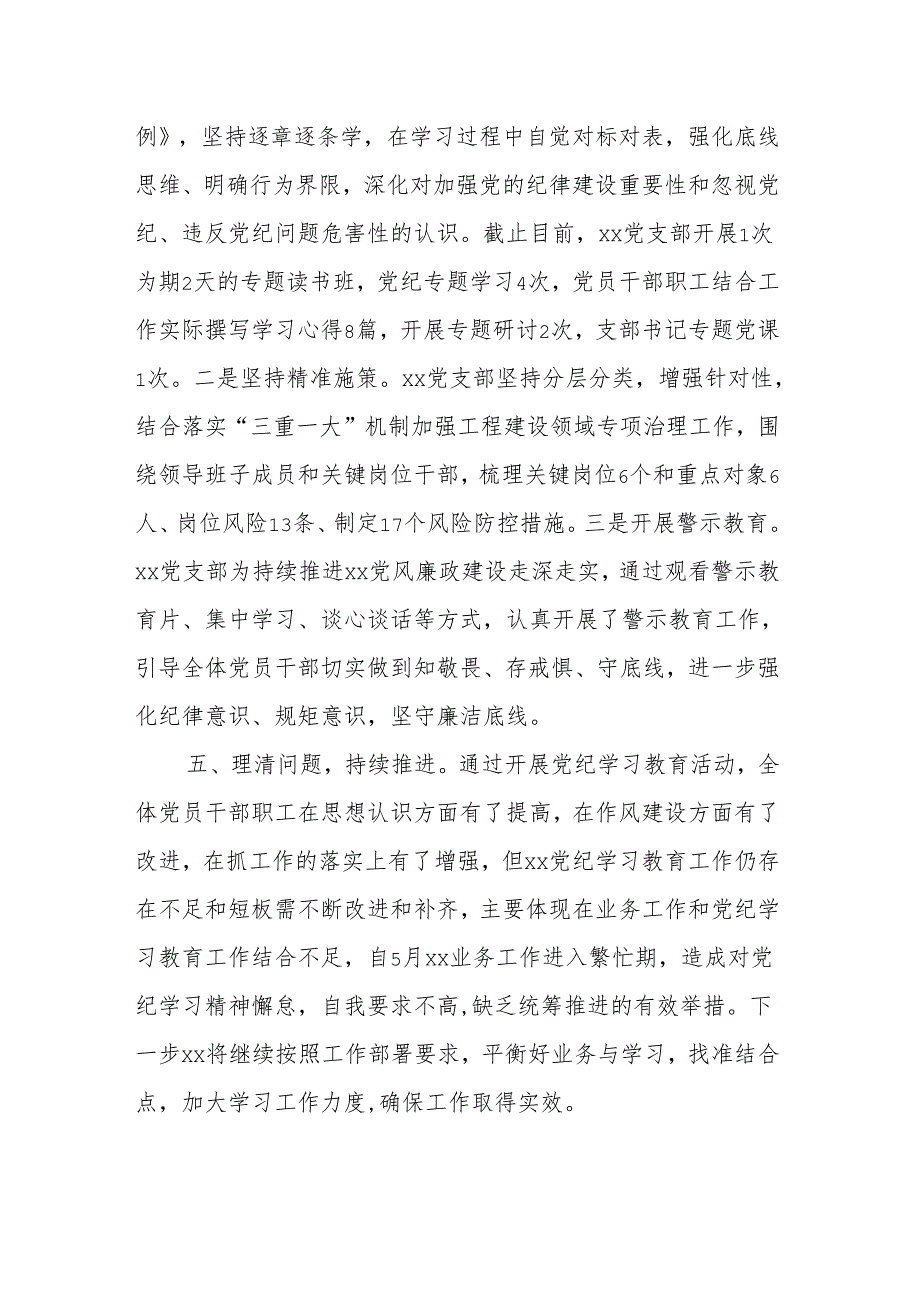 例》，坚持逐章逐条学，在学习过程中自觉对标对表，强化底线
思维、明确行为界限，深化对加强党的纪律建设重要性和忽视党
纪、违反党纪问题危害性的认识。截止目前，xx党支部开展1次
为期2天的专题读书班，党纪专题学习4次，党员干部职工结合工
作实际撰写学习心得8篇，开展专题研讨2次，支部书记专题党课
1次。二是坚持精准施策。xx党支部坚持分层分类，增强针对性，
结合落实“三重一大”机制加强工程建设领域专项治理工作，围
绕领导班子成员和关键岗位干部，梳理关键岗位6个和重点对象6
人、岗位风险13条、制定17个风险防控措施。三是开展警示教育。
xx党支部为持续推进xx党风廉政建设走深走实，通过观看警示教
育片、集中学习、谈心谈话等方式，认真开展了警示教育工作，
引导全体党员干部切实做到知敬畏、存戒惧、守底线，进一步强
化纪律意识、规矩意识，坚守廉洁底线。
五、理清问题，持续推进。通过开展党纪学习教育活动，全
体党员干部职工在思想认识方面有了提高，在作风建设方面有了
改进，在抓工作的落实上有了增强，但xx党纪学习教育工作仍存
在不足和短板需不断改进和补齐，主要体现在业务工作和党纪学
习教育工作结合不足，自5月xx业务工作进入繁忙期，造成对党
纪学习精神懈怠，自我要求不高,缺乏统筹推进的有效举措。下
一步xx将继续按照工作部署要求，平衡好业务与学习，找准结合
点，加大学习工作力度,确保工作取得实效。